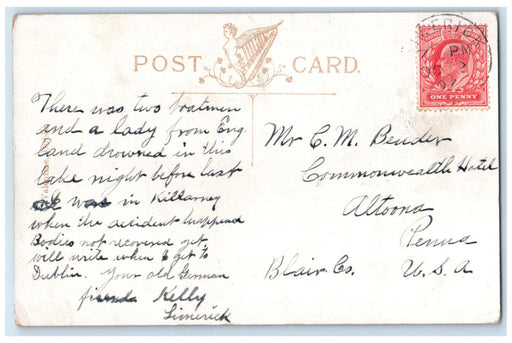 POST CARD.
There was two boatmen
and a lady from Eng
land drowned in this
lake night before last
was in Killarney
when the accident happend
Bodies not recovered yet
will write when I get to
Dublin. Your old German
friend Kelly
Limerick
Mr C. M. Bender
Commonwealth Hotel
Altoona
Penna
Blair Co. U. S. A
ONE PENNY
PM